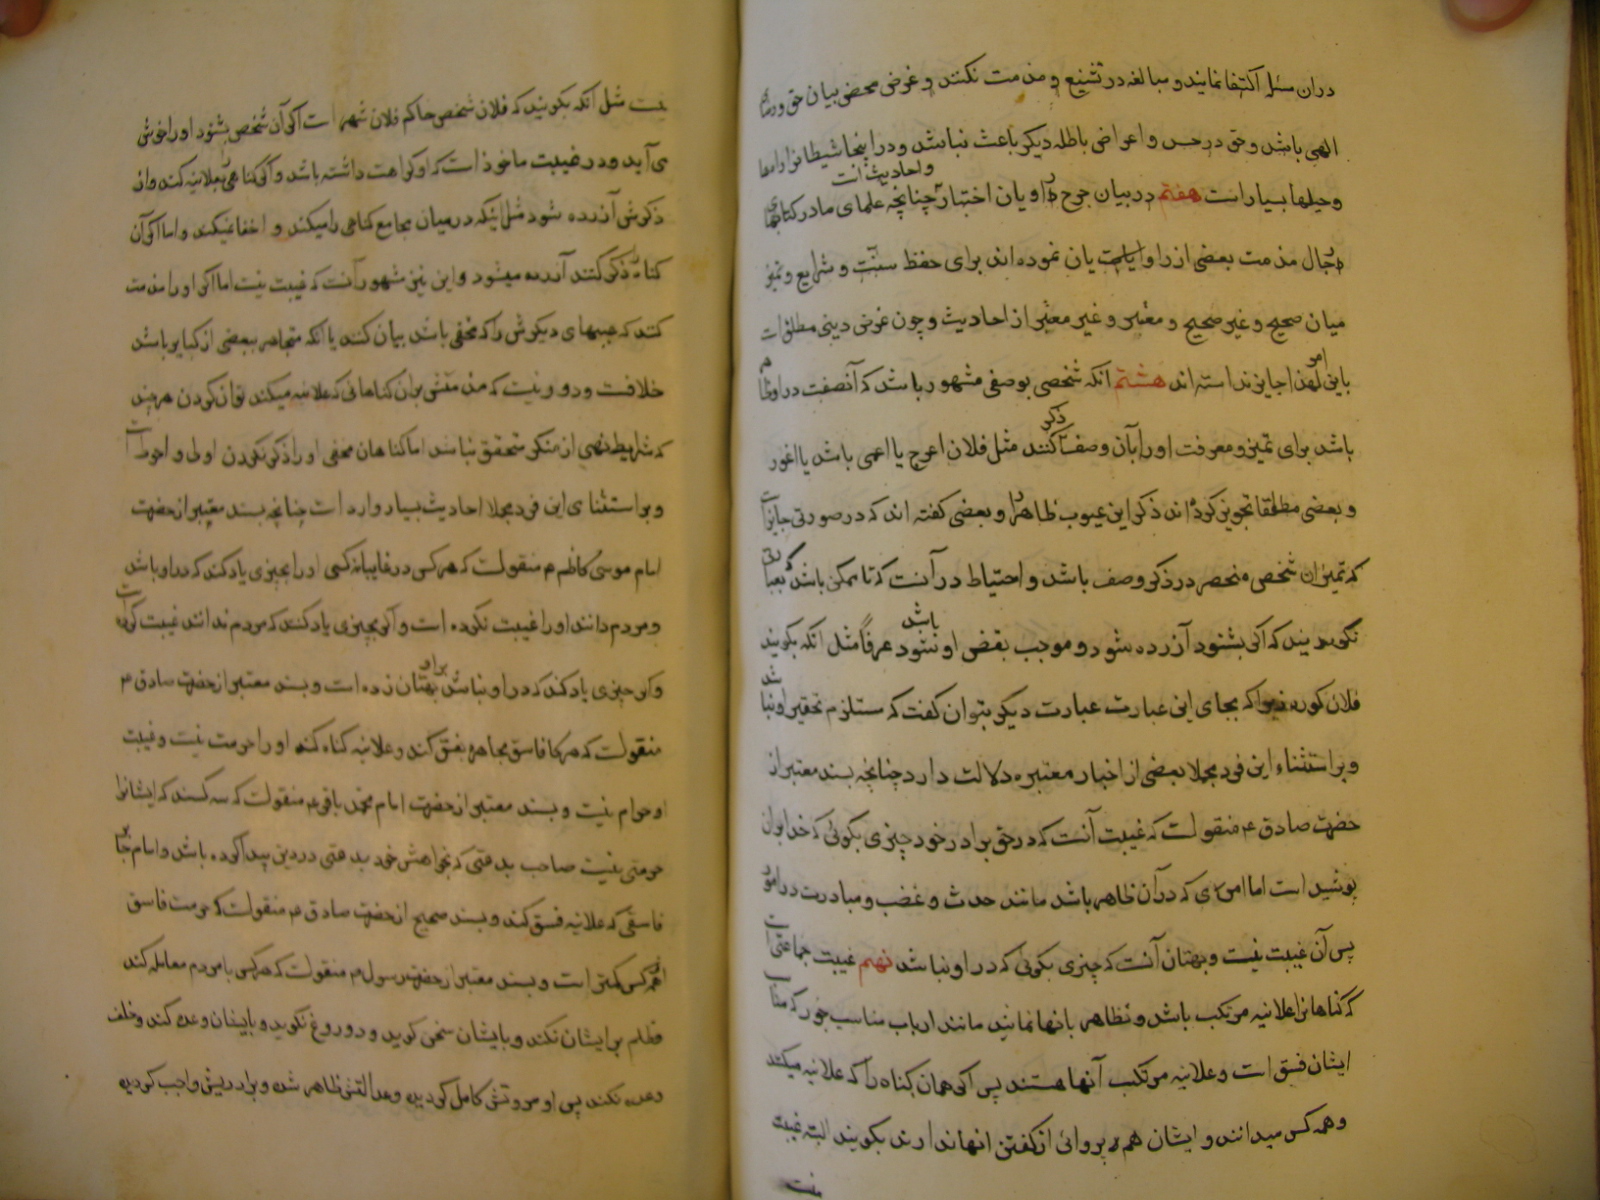 دران مسئله اکتفا نمایند و مبالغه در تشنیع و مذمت نکنند و غرض محض بیان حق و رضای
الهی باشد و حقد و حسد و اعراض باطله دیگر باعث نباشد و در اینجا شیطانرا راهها
و حیلها بسیار است هفتم در بیان جرح راویان اخبار و احادیث است چنانچه علمای ما در کتابهای
رجال مذمت بعضی از راویان نموده اند برای حفظ سنت و شرایع و تمیز
میان صحیح و غیر صحیح و معتبر و غیر معتبر از احادیث و چون غرض دینی مطلق است
باین امر لهذا جایز دانسته اند هشتم انکه شخصی بوصفی مشهور باشد که آنصفت در او ظاهر
باشد برای تمیز و معرفت او را بآن وصف ذکر کنند مثل فلان اعرج یا اعمی باشد یا اعور
و بعضی مطلقا تجویز کرده اند ذکر این عیوب ظاهر را و بعضی گفته اند که در صورتی جایز است
که تمیز ان شخص منحصر در ذکر وصف باشد و احتیاط در آنست که تا ممکن باشد بعبارتی
نگویند که اگر بشنود آزرده شود و موجب نقص او باشد عرفاً مثل انکه بگویند
فلان کوره زیرا که بجای این عبارت عبارت دیگر بتوان گفت که مستلزم تحقیر او نباشد
و بر استثناء این فرد مجملا بعضی از اخبار معتبره دلالت دارد چنانچه بسند معتبر از
حضرت صادق ع منقولست که غیبت آنست که در حق برادر خود چیزی بگوئی که خدا بران
پوشیده است اما امری که در آن ظاهر باشد مانند حدث و غضب و مبادرت در امور
پس آن غیبت نیست و بهتان آنست که چیزی بگوئی که در او نباشد نهم غیبت جماعتی است
که گناهانرا علانیه مرتکب باشد و تظاهر بانها نمایند مانند ارباب مناسب جور که
ایشان فسق است و علانیه مرتکب آنها هستند پس اگر همان گناه را که علانیه میکنند
و همه کس میدانند و ایشان هم پروائی از گفتن انها ندارند بگویند البته غیبت
نیست
نیست مثل انکه بگویند که فلان شخص حاکم فلان شهر است اگر آن شخص بشنود او را خوش
می آید و در غیبت ماخوذ است که او کراهت داشته باشد و اگر گناهی را علانیه کند و از
ذکرش آزرده شود مثل اینکه در میان مجامع گناهی را میکند و اخفا نمیکند و اما اگر آن
گناه را ذکر کنند آزرده میشود و این نیز مشهور آنست که غیبت نیست اما اگر او را مذمت
کنند که عیبهای دیگرش را که مخفی باشد بیان کنند یا انکه متجاهر ببعضی از کبایر باشد
خلافست و دور نیست که مذمتش بران گناهانی که علانیه میکند توان کردن هر چند
که شرایط نهی از منکر متحقق نباشد اما گناهان مخفی او را ذکر نکردن اولی و احوط است
و بر استثنای این فرد مجملا احادیث بسیار وارد است چنانچه بسند معتبر از حضرت
امام موسی کاظم ع منقولست که هر کس در غایبانه کسی او را بچیزی یاد کند که در او باشد
و مردم دانند او را غیبت نکرده است و اگر بچیزی یاد کند که مردم ندانند غیبت کرده است
و اگر بچیزی یاد کند که در او نباشد بر او بهتان زده است و بسند معتبر از حضرت صادق ع
منقولست که هرگاه فاسق مجاهره بفسق کند و علانیه گناه کند او را حرمت نیست و غیبت
او حرام نیست و بسند معتبر از حضرت امام محمد باقر ع منقولست که سه کسند که ایشانرا
حرمتی نیست صاحب بدعتی که بخواهش خود بدعتی در دین پیدا کرده باشد و امام جابر
فاسقی که علانیه فسق کند و بسند صحیح از حضرت صادق ع منقولست که حرمت فاسق
از همه کس کمتر است و بسند معتبر از حضرت رسول ص منقولست که هر کس با مردم معامله کند
و ظلم بر ایشان نکند و بایشان سخن گوید و دروغ نگوید و بایشان وعده کند و خلف
وعده نکند پس او مروتش کامل گردیده و عدالتش ظاهر شده و برادریش واجب گردیده